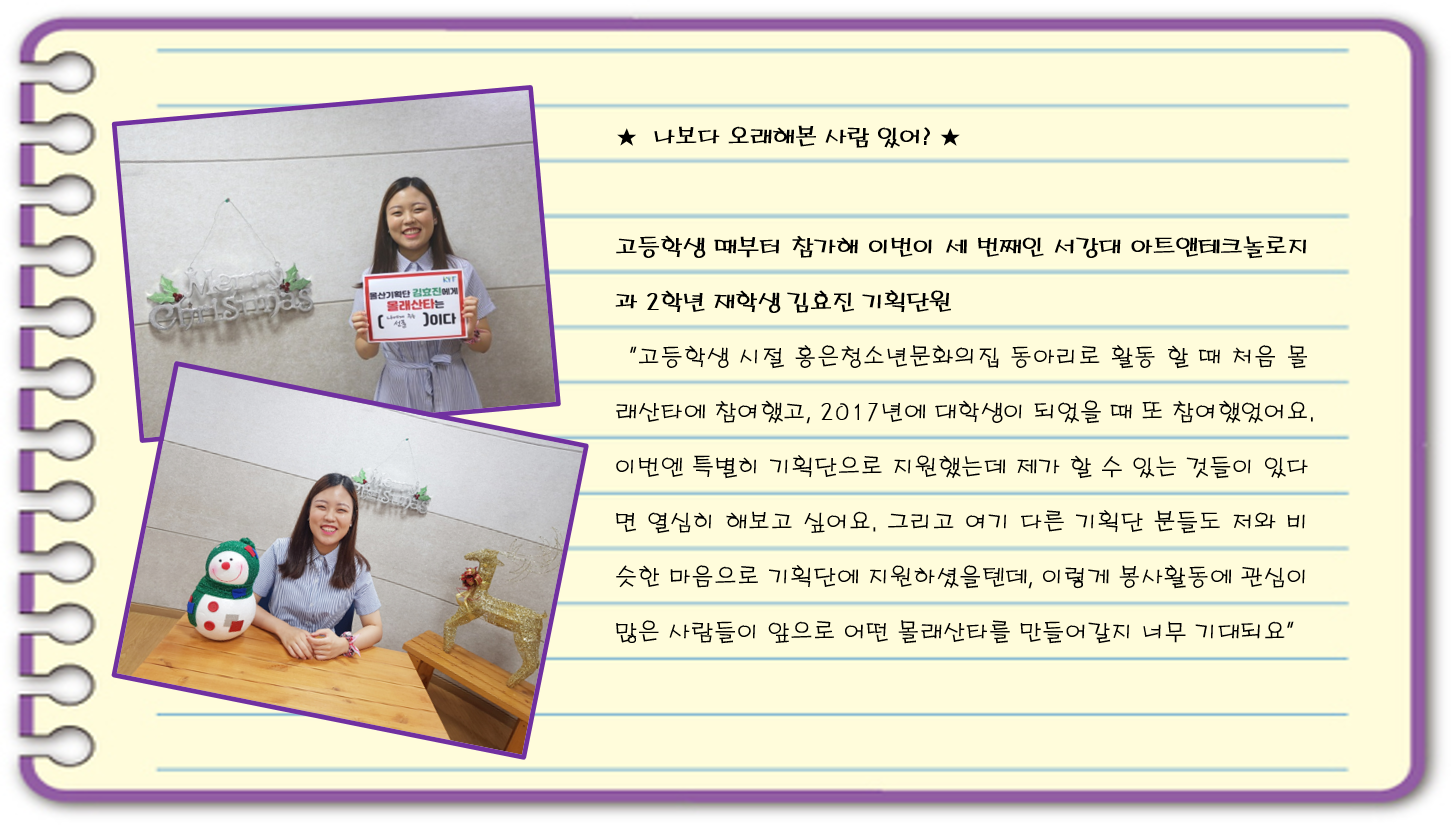 ★ 나보다 오래해본 사람 있어? ★
고등학생 때부터 참가해 이번이 세 번째인 서강대 아트앤테크놀로지
과 2학년 재학생 김효진 기획단원
"고등학생 시절 홍은청소년문화의집 동아리로 활동 할 때 처음 몰
래산타에 참여했고, 2017년에 대학생이 되었을 때 또 참여했었어요.
이번엔 특별히 기획단으로 지원했는데 제가 할 수 있는 것들이 있다
면 열심히 해보고 싶어요. 그리고 여기 다른 기획단 분들도 저와 비
슷한 마음으로 기획단에 지원하셨을텐데, 이렇게 봉사활동에 관심이
많은 사람들이 앞으로 어떤 몰래산타를 만들어갈지 너무 기대되요"
Merry
Christmas
몰산기획단 김효진에게
몰래산타는
( 선물 )이다
Christmas